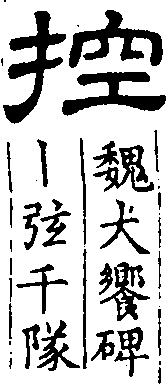 控
魏犬饗碑
丨弦千隊